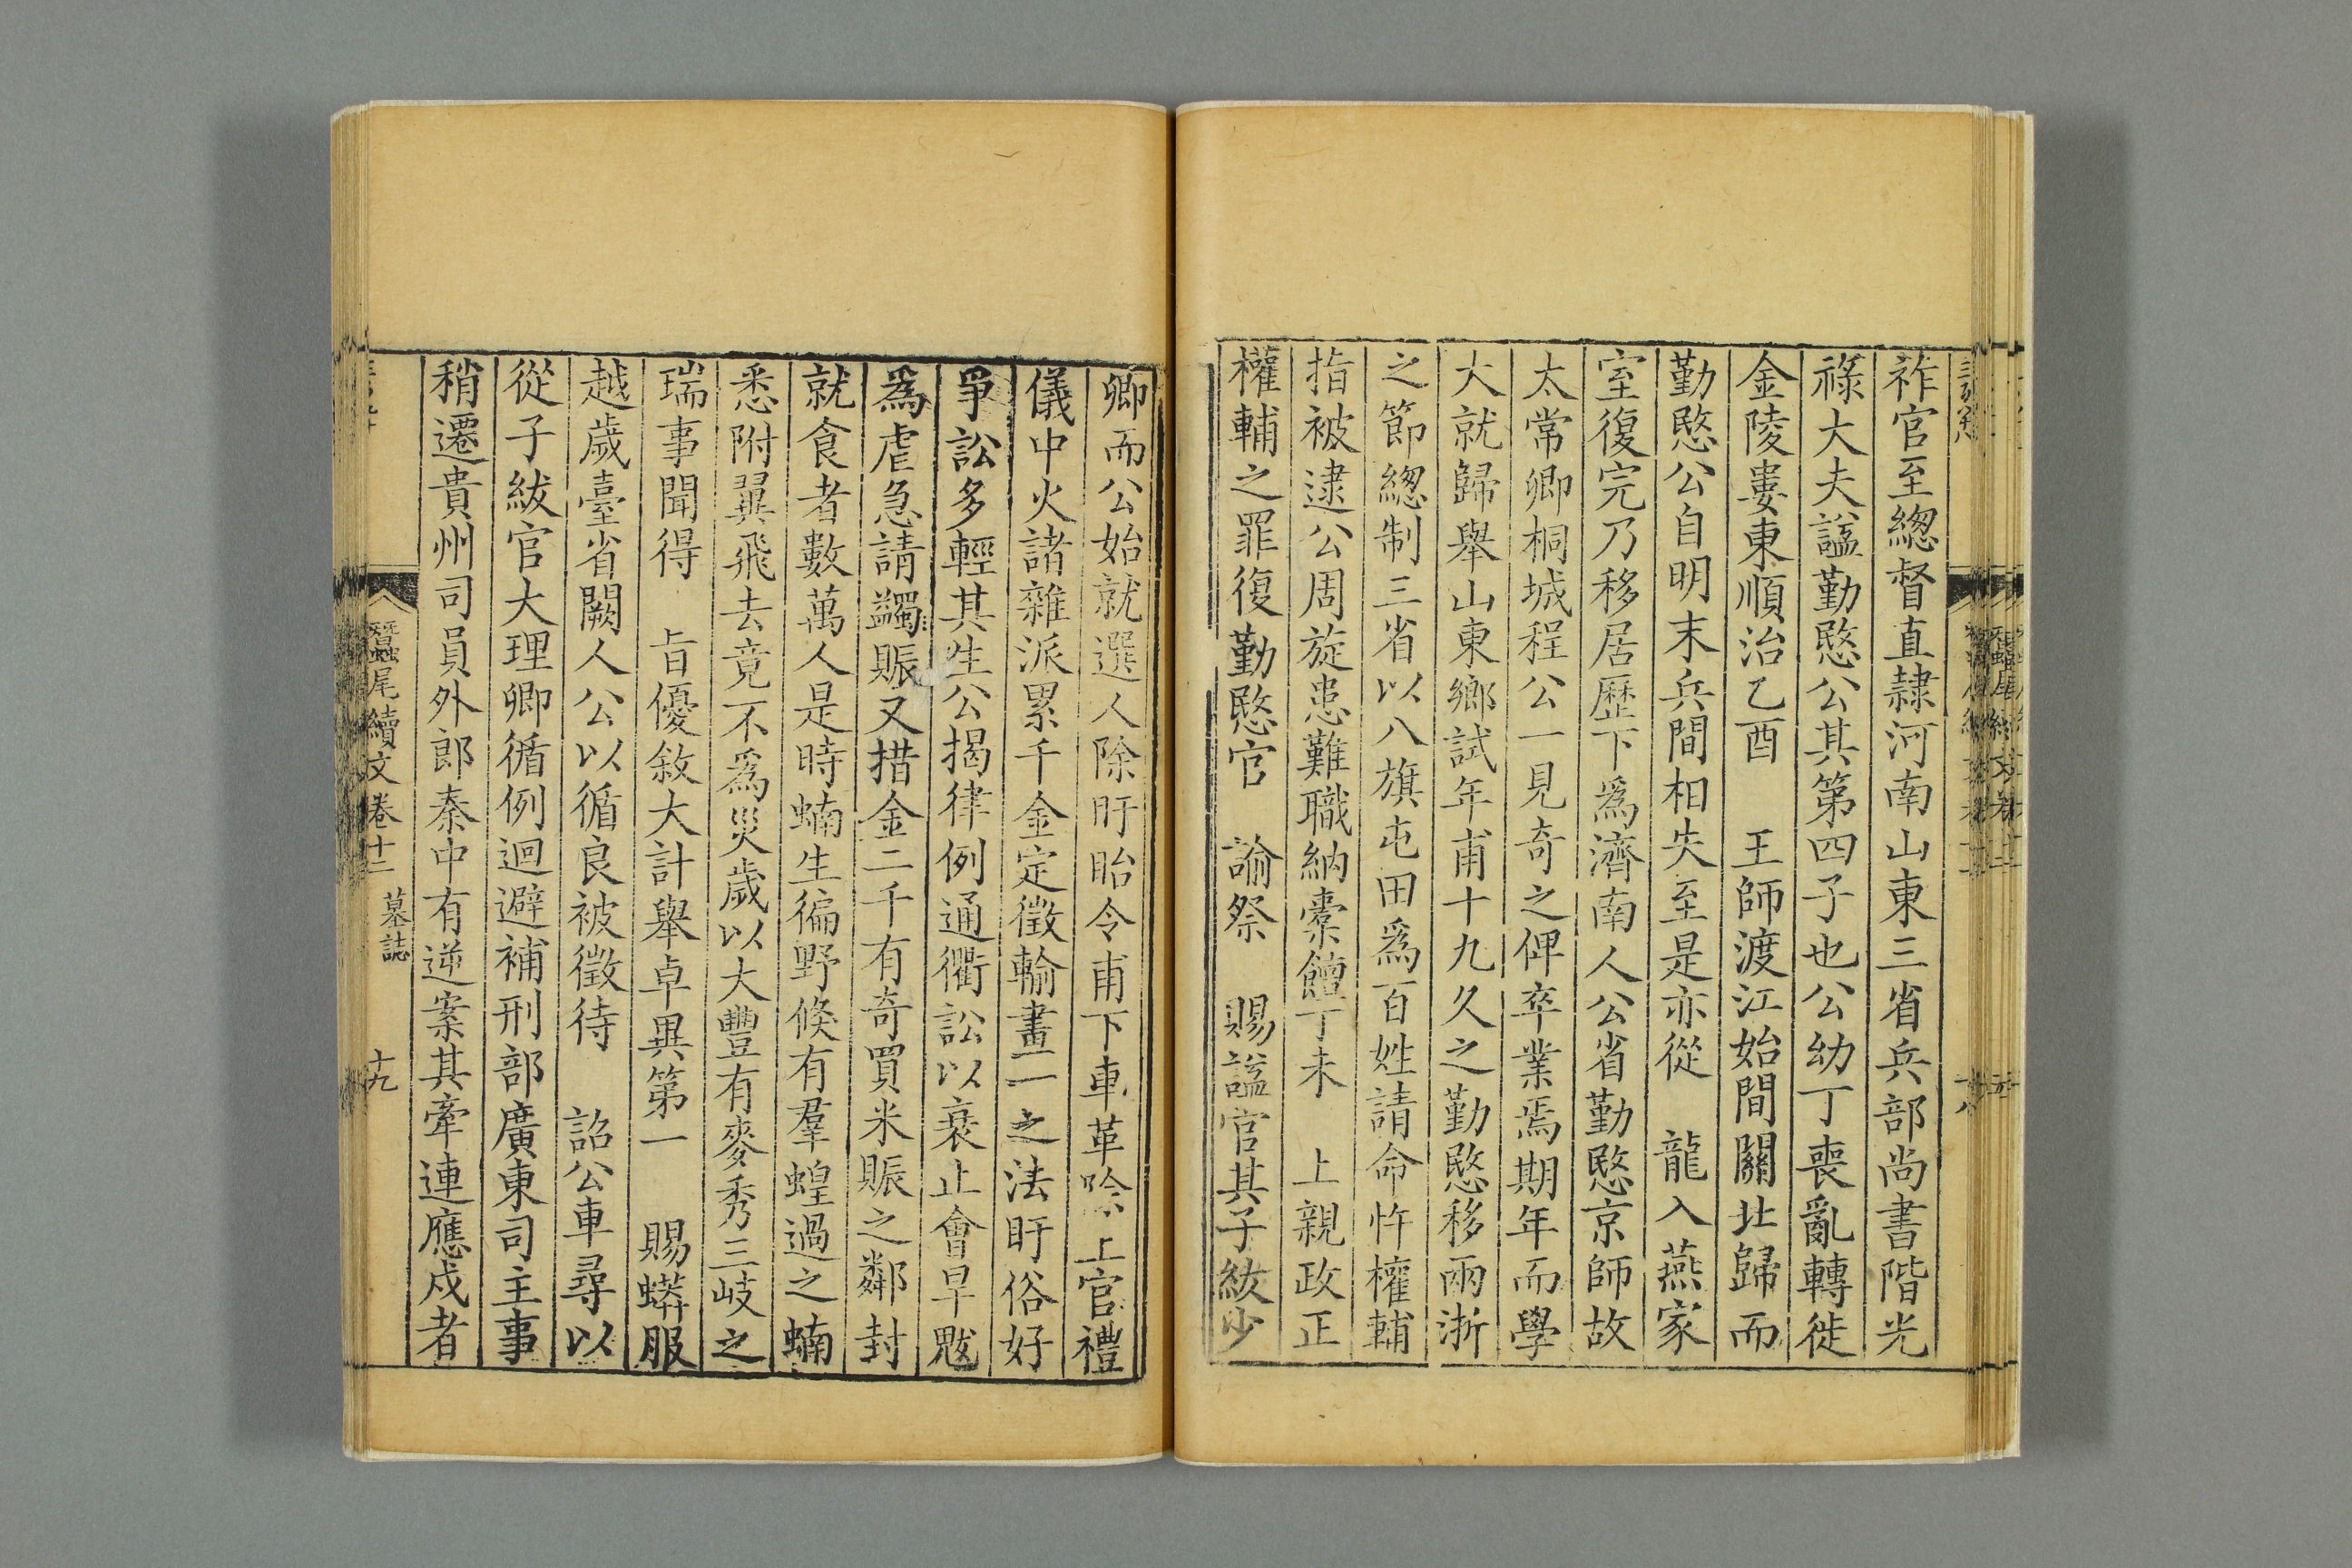 祚官至緫督直隷河南山東三省兵部尚書階光
祿大夫諡勤愍公其第四子也公幼丁喪亂轉徙
金陵婁東順治乙酉　王師渡江始間關北歸而
勤愍公自明末兵間相失至是亦從　龍入燕家
室復完乃移居歷下爲濟南人公省勤愍京師故
太常卿桐城程公一見奇之俾卒業焉期年而學
大就歸舉山東鄉試年甫十九久之勤愍移兩浙
之節緫制三省以八旗屯田爲百姓請命忤權輔
指被逮公周旋患難職納橐饘丁未　上親政正
權輔之罪復勤愍官　諭祭　賜諡官其子紱少
卿而公始就選人除盱眙令甫下車革唫上官禮
儀中火諸雜派累千金定徵輸畫一之法盱俗好
爭訟多輕其生公揭律例通衢訟以衰止會旱魃
爲虐急請蠲賑又措金二千有奇買米賑之鄰封
就食者數萬人是時蝻生徧野倐有羣蝗過之蝻
悉附翼飛去竟不爲災歲以大豐有麥秀三岐之
瑞事聞得　旨優敘大計舉卓異第一　賜蟒服
越歲臺省闕人公以循良被徵待　詔公車尋以
從子紱官大理卿循例迴避補刑部廣東司主事
稍遷貴州司員外郎秦中有逆案其牽連應戍者
蠶尾續文卷十二　墓誌　十九